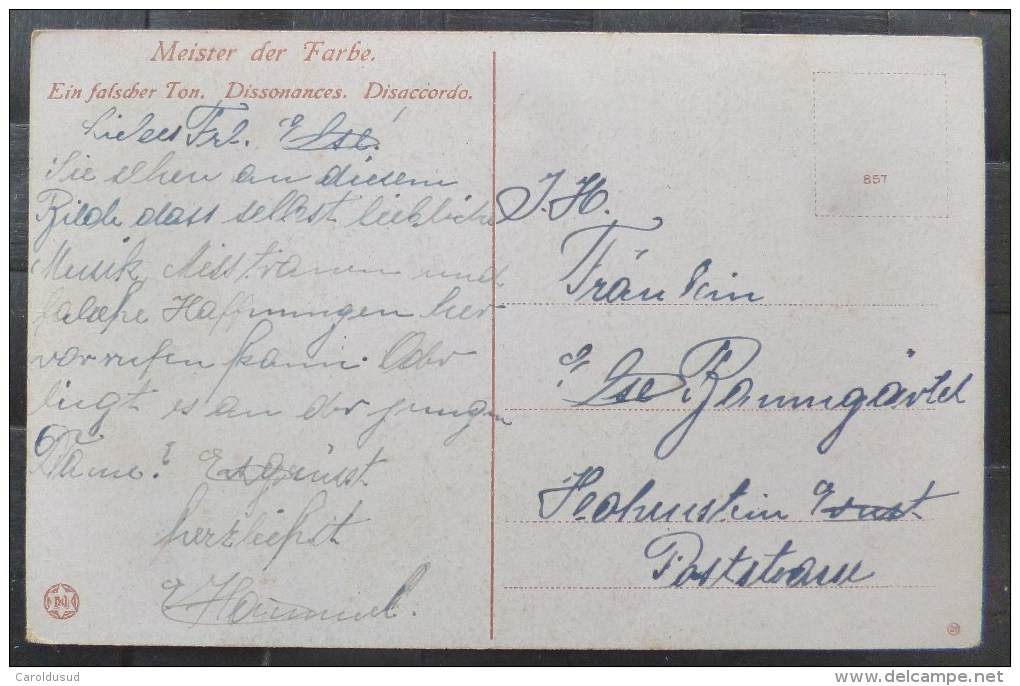 Meister der Farbe.
Ein falscher Ton. Dissonances. Disaccordo.
Liebes Frl. Else!
Sie sehen an diesem
Bilde dass selbst liebliche
Musik, Misstrauen und
falsche Hoffnungen her-
vorrufen kann. Oder
liegt es an der jungen
Dame? Es grüsst
herzlichst
Hammel.
857
J. H.
Fräulein
Else Baumgärtel
Hohenstein Ernst
Poststrasse
Caroldusud